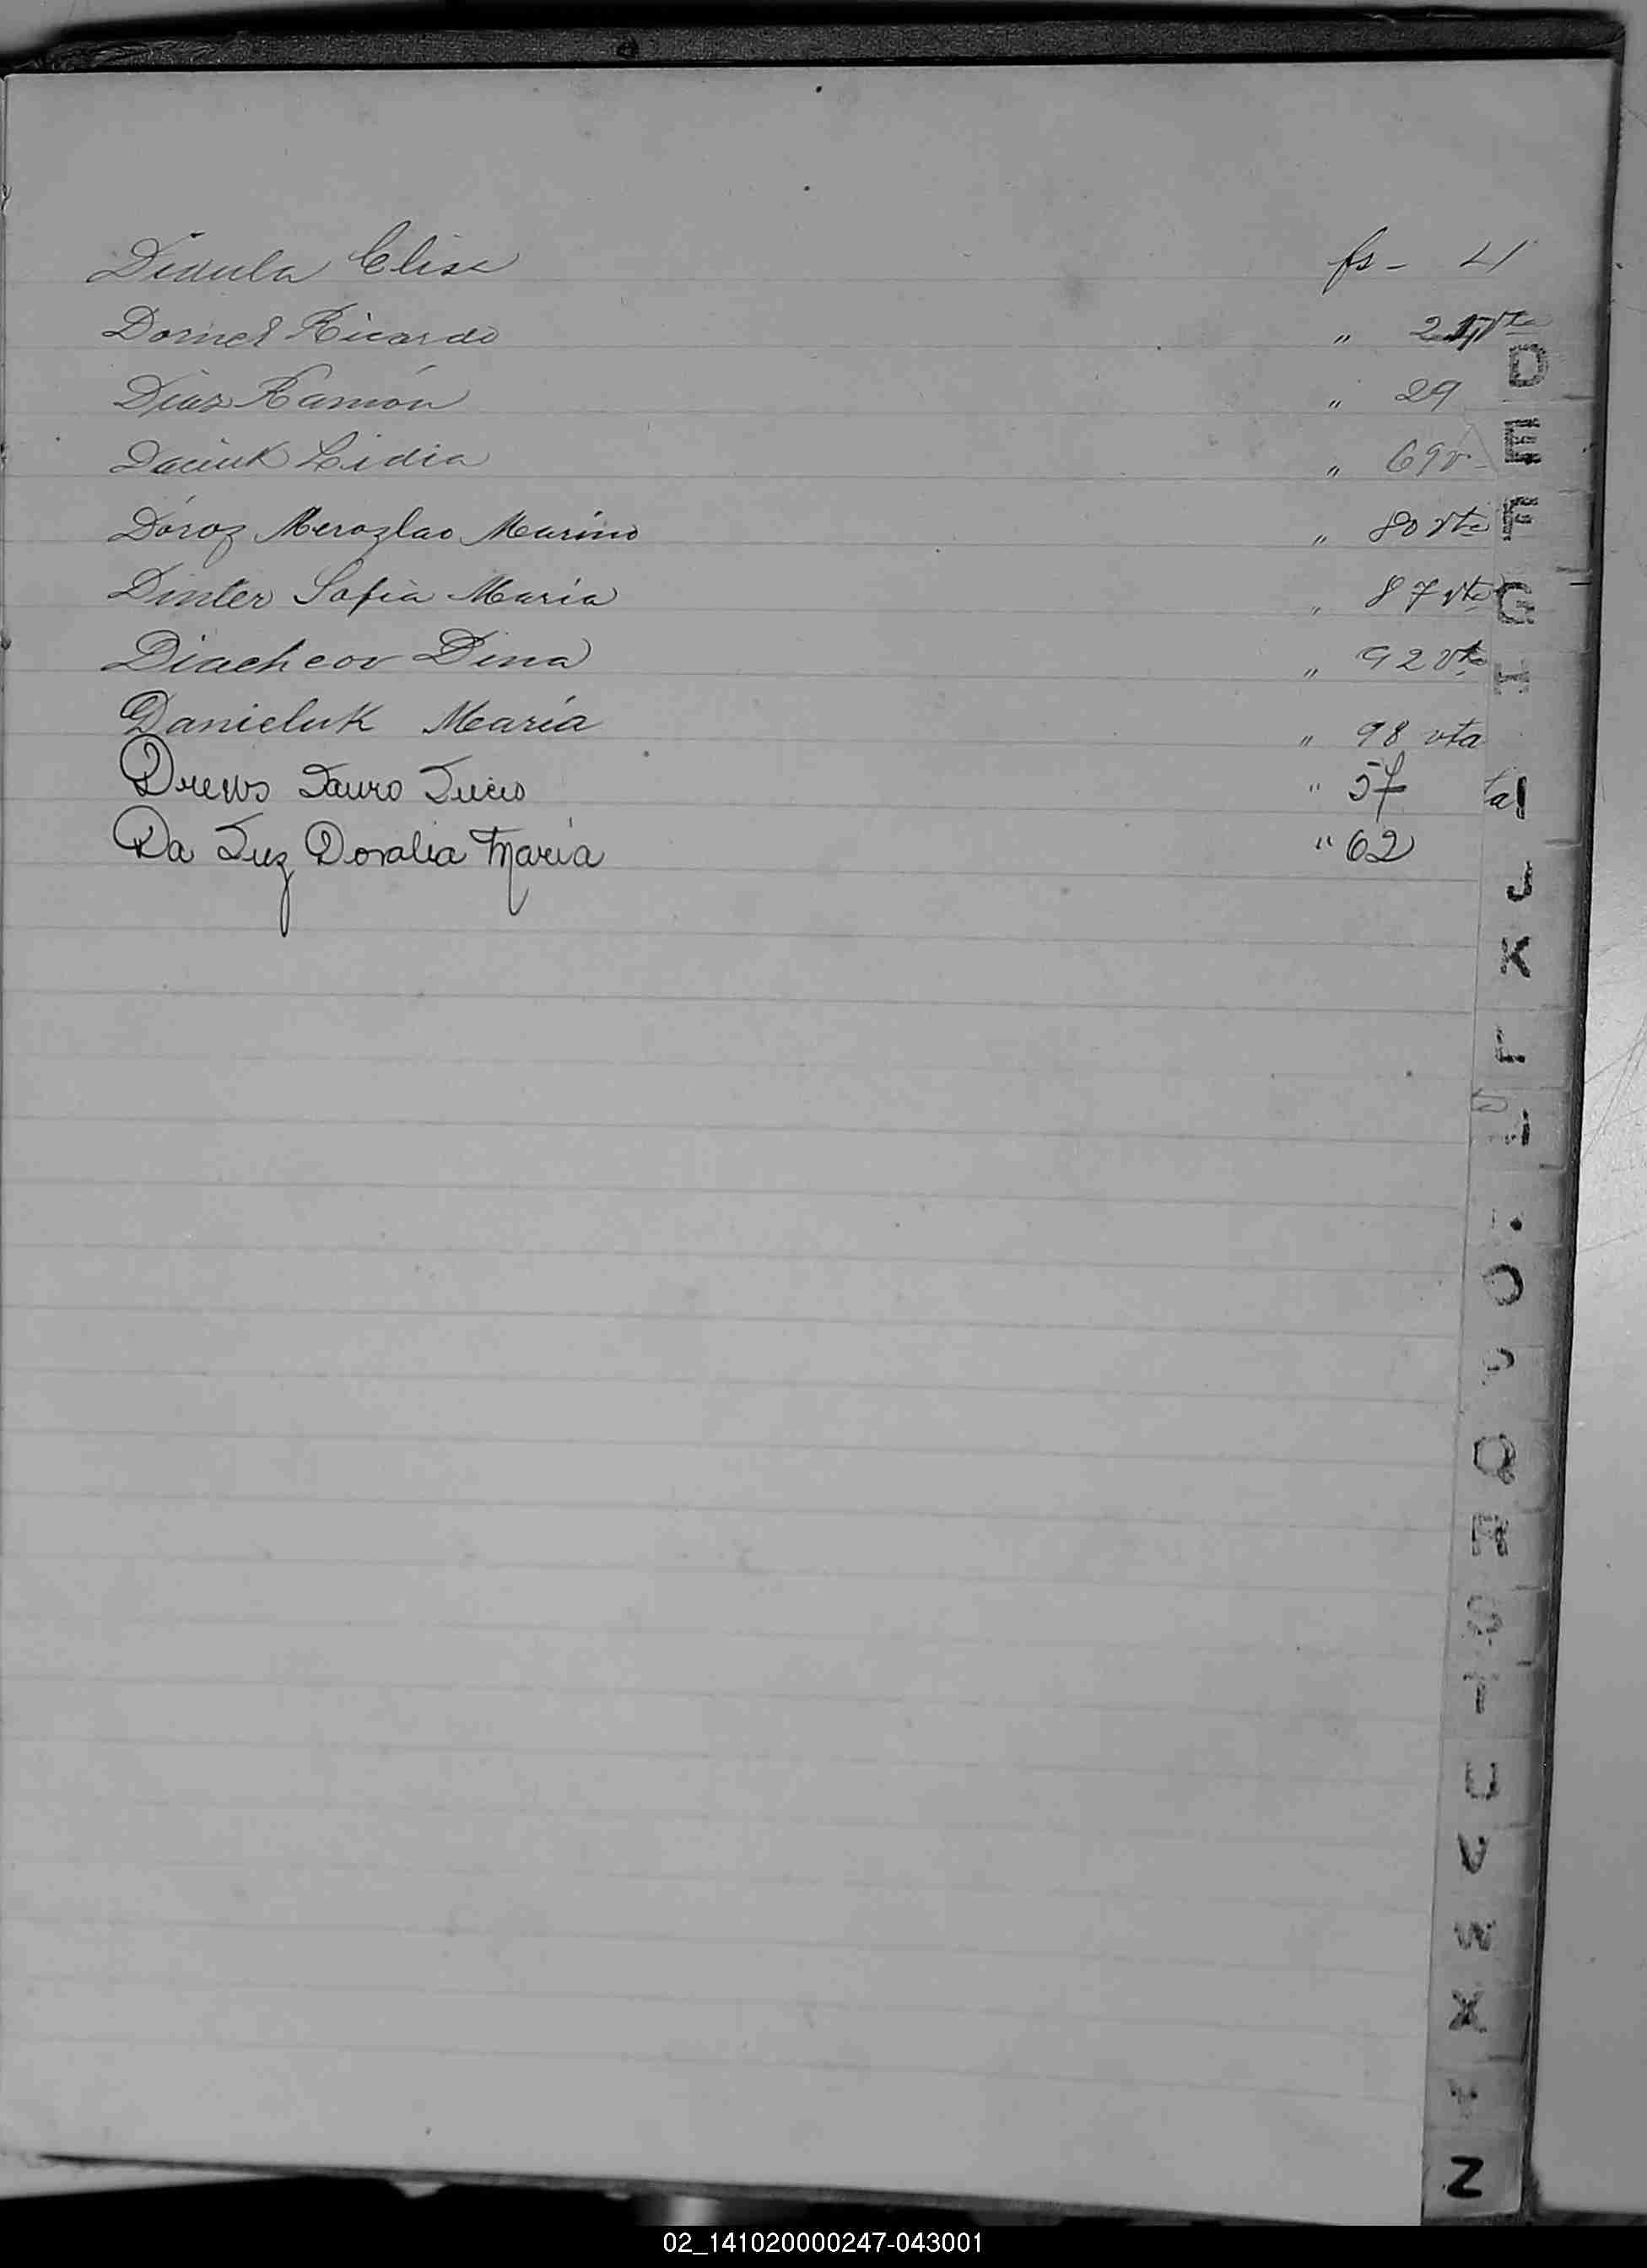 Elisa fs- 4
Dornel Ricardo " 21 vta
Diaz Ramón " 29
D
Daciuk Lidia " 69v-
E
Doroz Meroslao Marino " 80 vta
F
Dinter Sofia María " 87 vta
G
Diacheov Dina " 92 vta
H
Danieluk María " 98 vta
Drews Lauro Lucio " 57
I
Da Luz Doralia María " 62
J
K
L
O
Q
R
S
T
U
V
W
X
Y
Z
02_141020000247-043001